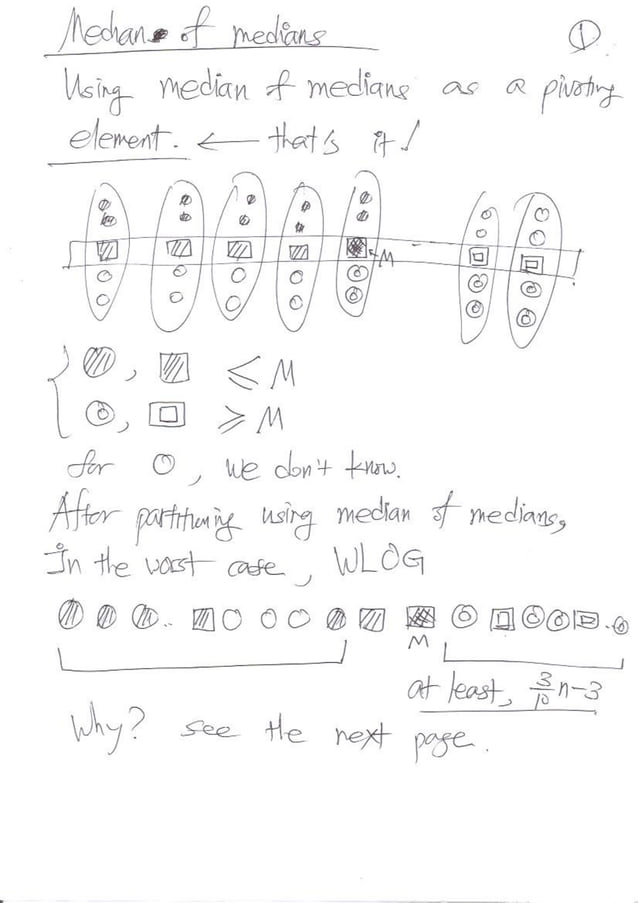 Median of medians ①
Using median of medians as a pivoting
element. ← that's it!
M
, ≤ M
, ≥ M
for ○, we don't know.
After partitioning using median of medians,
In the worst case, WLOG
M
at least, 3/10 n-3
Why? see the next page.